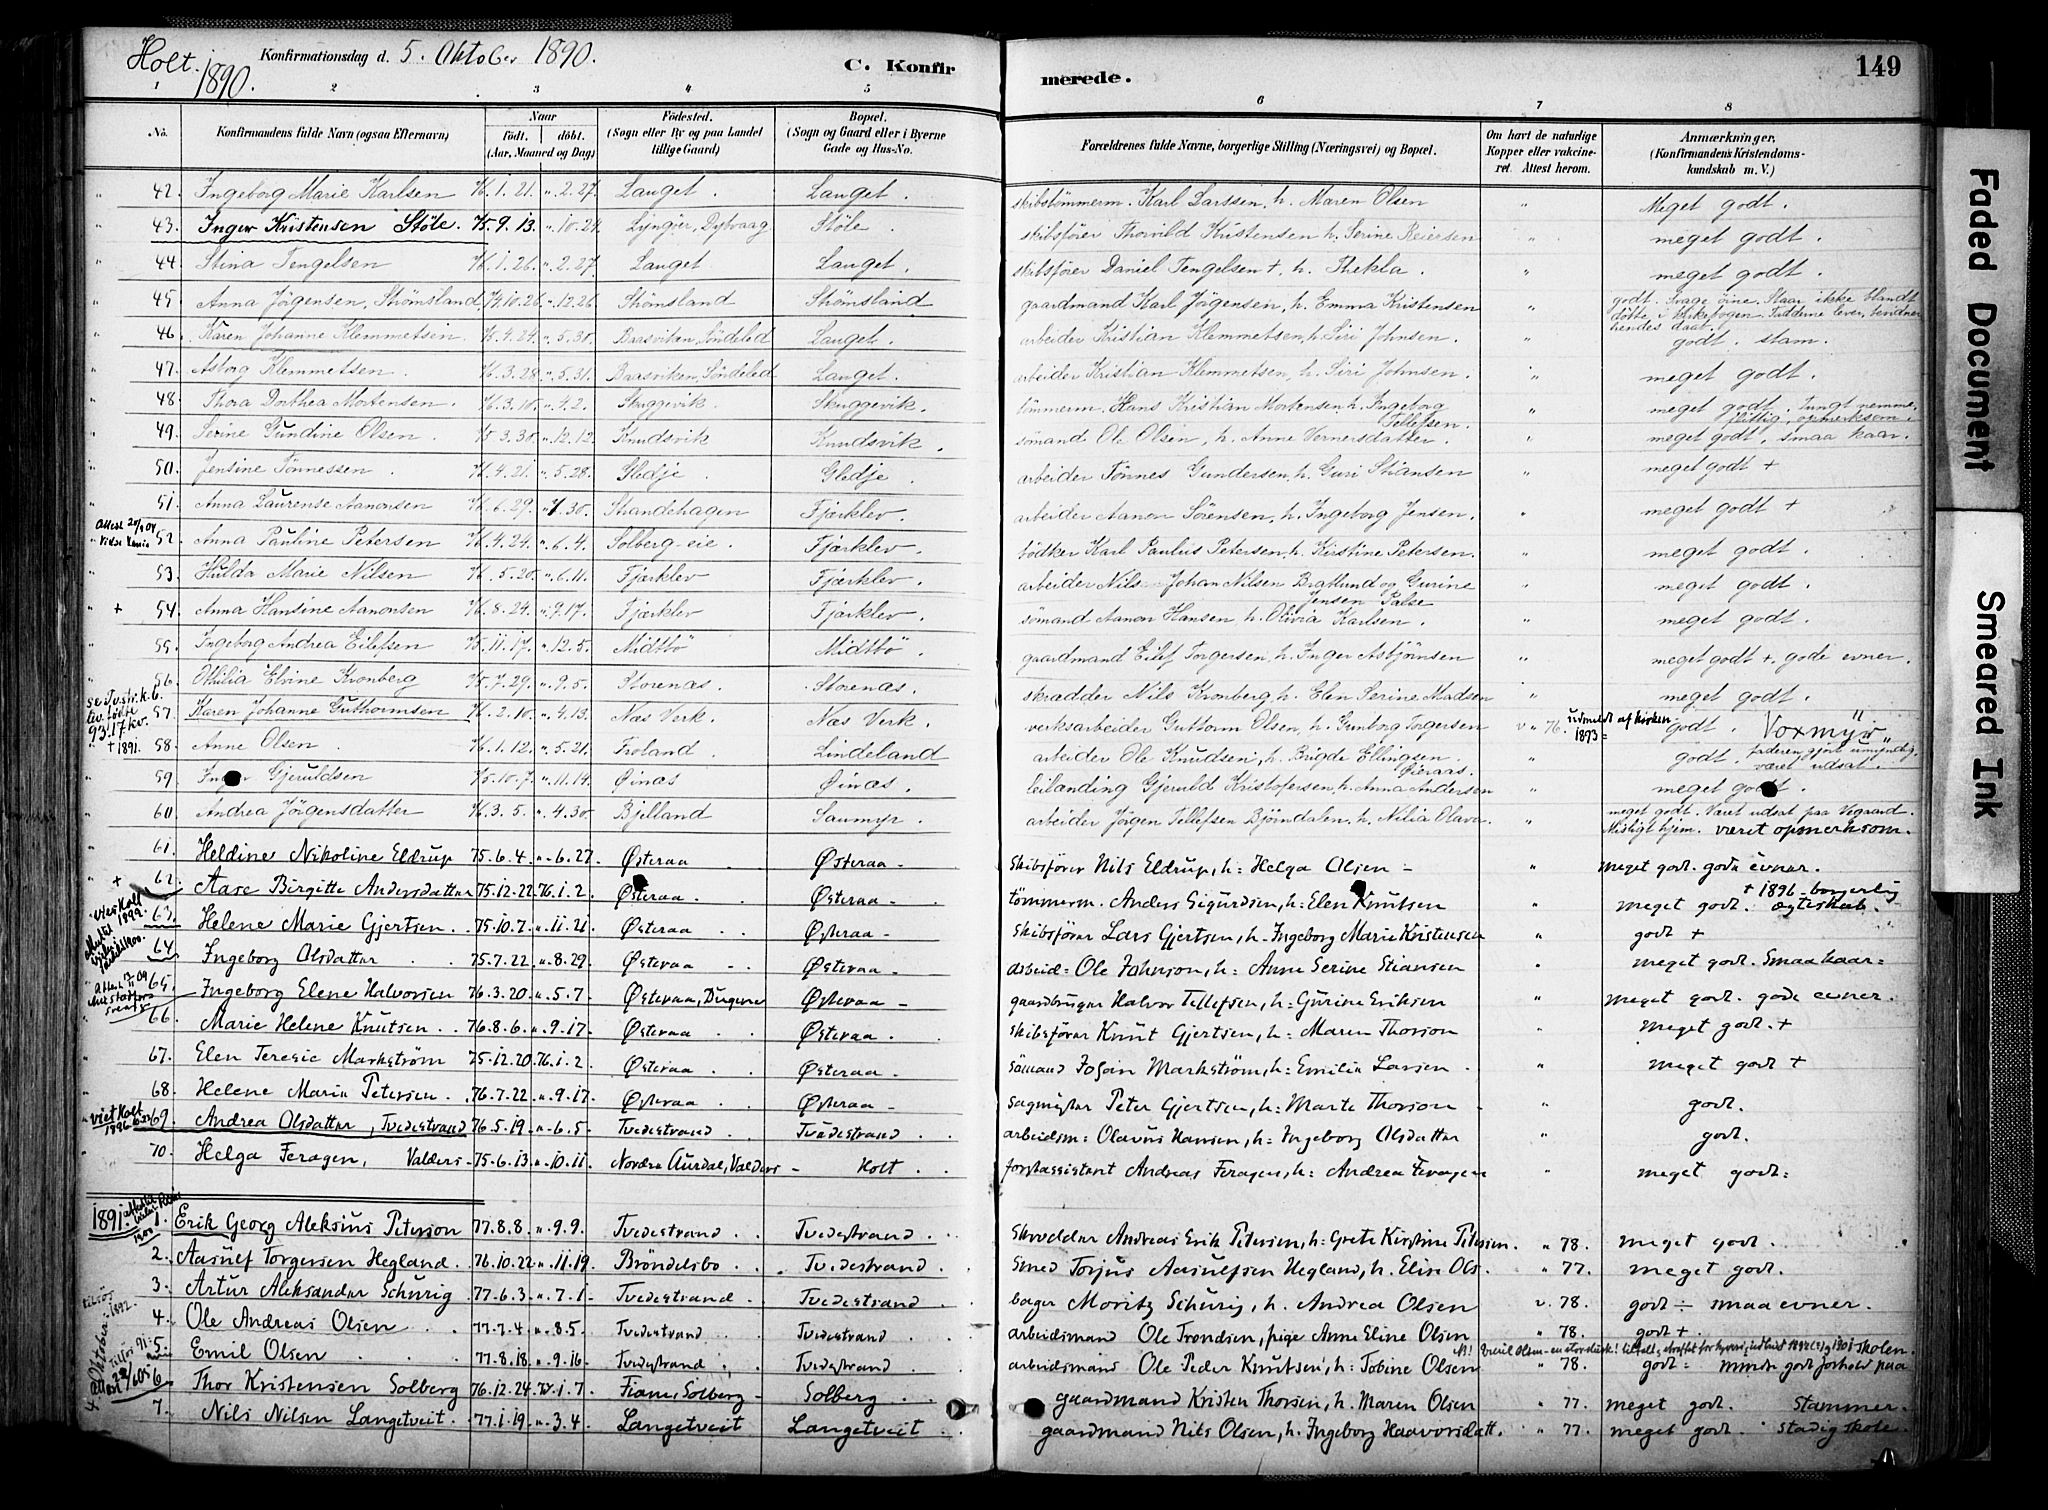 Holt. 1890.
Konfirmationsdag d. 5. Oktober 1890.
C. Konfirmerede.
149
1 2 3 4 5 6 7 8
No. Konfirmandens fulde Navn (ogsaa Efternavn) Naar født. døbt. (Aar, Maaned og Dag) Fødested. (Sogn eller By og paa Landet tillige Gaard) Bopæl. (Sogn og Gaard eller i Byerne Gade og Hus-No. Forældrenes fulde Navne, borgerlige Stilling (Næringsvei) og Bopæl. Om havt de naturlige Kopper eller vaccineret. Attest herom. Anmærkninger, (Konfirmandens Kristendomskundskab m. V.)
42. Ingeborg Marie Karlsen 76.1.21. " 2.27. Lauget. Lauget. skibstömmerm. Karl Larssen, h. Maren Olsen " Meget godt.
43. Inger Kristensen Støle. 75.9.13. " 10.24. Lyngør, Dybvaag Støle. skibsfører Thorvild Kristensen h. Serine Reiersen " meget godt.
44. Stina Tengelsen 76.1.26. " 2.27. Lauget Lauget. skibsfører Daniel Tengelsen +, h. Thekla. " meget godt.
45. Anna Jörgensen, Strømsland 74.10.26. " 12.26. Strømsland Strømsland gaardmand Karl Jörgensen, h. Emma Kristensen " godt. Svage øine. Staar ikke blandt døbte i kirkebogen. Fadderne lever, bevidner hendes daab.
46. Karen Johanne Klemmetsen. 75.4.24. " 5.30. Baasviken, Söndeled Lauget. arbeider Kristian Klemmetsen, h. Siri Johnsen. " godt. stam.
47. Asborg Klemmetsen. 76.3.28. " 5.31. Baasviken, Söndeled Lauget. arbeider Kristian Klemmetsen, h. Siri Johnsen. " meget godt.
48. Thora Dorthea Mortensen. 76.3.10. " 4.2. Skuggevik. Skuggevik. tömmerm. Hans Kristian Mortensen h. Ingeborg Tellefsen. " meget godt. Tungt nemme, flittig, opmerksom.
49. Serine Gundine Olsen. 75.3.30. " 12.12. Knudsvik Knudsvik. sømand Ole Olsen, h. Anne Vernersdatter. " meget godt, smaa kaar.
50. Jensine Tønnessen. 76.4.21. " 5.28. Gledje. Gledje. arbeider Tønnes Gundersen, h. Guri Stiansen " meget godt +
51. Anna Laurense Aanonsen 76.6.29. " 7.30. Strandehagen Fjærklev. arbeider Aanon Sörensen, h. Ingeborg Jensen. " meget godt +
Attest 20/9 04
52. Anna Pauline Petersen 76.4.24. " 6.4. Solberg-eie. Fjærklev. bödker Karl Paulus Petersen, h. Kirstine Petersen. " meget godt.
53. Hulda Marie Nilsen 76.5.20. " 6.11. Fjærklev Fjærklev. arbeider Nils Johan Nilsen Bratlund og Gurine Jensen Palse " meget godt.
+ 54. Anna Hansine Aanonsen 76.8.24. " 9.17. Fjærklev Fjærklev. sömand Aanon Hansen h. Olivia Karlsen. " meget godt.
55. Ingeborg Andrea Eilefsen 75.11.17. " 12.5. Midtbö Midtbö. gaardmand Eilef Torgersen, h. Inger Asbjörnsen " meget godt +. gode evner.
56. Othilia Elvine Kronberg 75.7.29. " 9.5. Storenæs. Storenæs. skrædder Nils Kronberg h. Elen Serine Madsen " meget godt.
57. Karen Johanne Guthormsen 76.2.10. " 4.13. Næs Verk. Næs Verk. verksarbeider Guttorm Olsen, h. Gunborg Torgersen v " 76. udmeldt af kirken 1893= godt.
+ 1891. 58. Anne Olsen. 76.1.12. " 5.21. Froland. Lindeland arbeider Ole Knudsen, h. Brigde Ellingsen. " godt. Voxmyr" faderen gjort umyndig. været udsat.
59. Inger Gjeruldsen 75.10.7. " 11.14. Øinæs Øinæs. leilænding Gjeruld Kristofersen, h. Anna Andersen Gieraas. " meget godt.
60. Andrea Jörgensdatter 76.3.5. " 4.30. Bjelland Saumyr. arbeider Jörgen Tellefsen Björndalen, h. Nilia Olava. " meget godt. Været udsat paa Vegaard. Misligt hjem. været opmerksom.
61. Heldine Nikoline Eldrup 75.6.4. " 6.27. Østeraa Østeraa skibsförer Nils Eldrup, h: Helga Olsen " meget godt. gode evner.
+ 62. Aase Birgitte Andersdatter 75.12.22. 76.1.2. Østeraa Østeraa tömmerm. Anders Sigurdsen, h: Elen Knutsen " meget godt. + 1896 - borgerlig ægteskab.
63. Helene Marie Gjertsen. 75.10.7. " 11.21. Østeraa Østeraa skibsförer Lars Gjertsen, h. Ingeborg Marie Kristensen " godt +
64. Ingeborg Olsdatter 75.7.22. " 8.29. Østeraa Østeraa arbeid= Ole Johnson, h: Anne Serine Stiansen " meget godt. Smaa kaar=
65. Ingeborg Elene Halvorsen 76.3.20. " 5.7. Østeraa, Dugene Østeraa gaardbruger Halvor Tellefsen, h: Gurine Eriksen " meget godt. gode evner.
66. Marie Helene Knutsen. 76.8.6. " 9.17. Østeraa Østeraa skibsförer Knut Gjertsen, h: Maren Thorson " meget godt. +
67. Elen Teresie Markström 75.12.20. 76.1.2. Østeraa Østeraa sömand Johan Markström, h: Emilie Larsen " meget godt +
68. Helene Marie Petersen. 76.7.22. " 9.17. Østeraa Østeraa sagmester Peter Gjertsen, h: Marte Thorson " godt.
viet Holt 1896
69. Andrea Olsdatter, Tvedestrand 76.5.19. " 6.5. Tvedestrand Tvedestrand arbeidsm: Olavus Hansen, h: Ingeborg Olsdatter " godt.
70. Helga Feragen, Valders 75.6.13. " 10.11. Nordre Aurdal, Valders Holt forstassistent Andreas Feragen, h: Andrea Feragen " meget godt:
1891.
1. Erik Georg Aleksius Peterson 77.8.8. " 9.9. Tvedestrand Tvedestrand. Skredder Andreas Erik Petersen, h: Grete Kirstine Petersen. " 78. meget godt.
2. Aasulf Torgersen Hegland. 76.10.22. " 11.19. Bröndelsbo Tvedestrand. Smed Torjus Aasulfsen Hegland, h. Elise Ols. " 77. meget godt.
3. Artur Aleksander Schurig 77.6.3. " 7.1. Tvedestrand Tvedestrand bager Moritz Schurig, h. Andrea Olsen v. 78. godt ÷ smaa evner.
4. Ole Andreas Olsen 77.7.4. " 8.5. Tvedestrand Tvedestrand arbeidsmand Ole Trondsen, pige Anne Eline Olsen " 78. godt +.
5. Emil Olsen 77.8.18. " 9.16. Tvedestrand Tvedestrand arbeidsmand Ole Peder Knutsen, h: Tobine Olsen " 78. godt = mindre godt forhold paa skolen.
6. Thor Kristensen Solberg 76.12.24. 77.1.7. Fiane, Solberg Solberg gaardmand Kristen Thorsen, h. Maren Olsen " 77. meget godt. Stammer.
7. Nils Nilsen Langetveit. 77.1.19. " 3.4. Langetveit Langetveit gaardmand Nils Olsen, h. Ingeborg Haavorsdatt. " 77. meget godt. stadig skole.
Faded Document
Smeared Ink